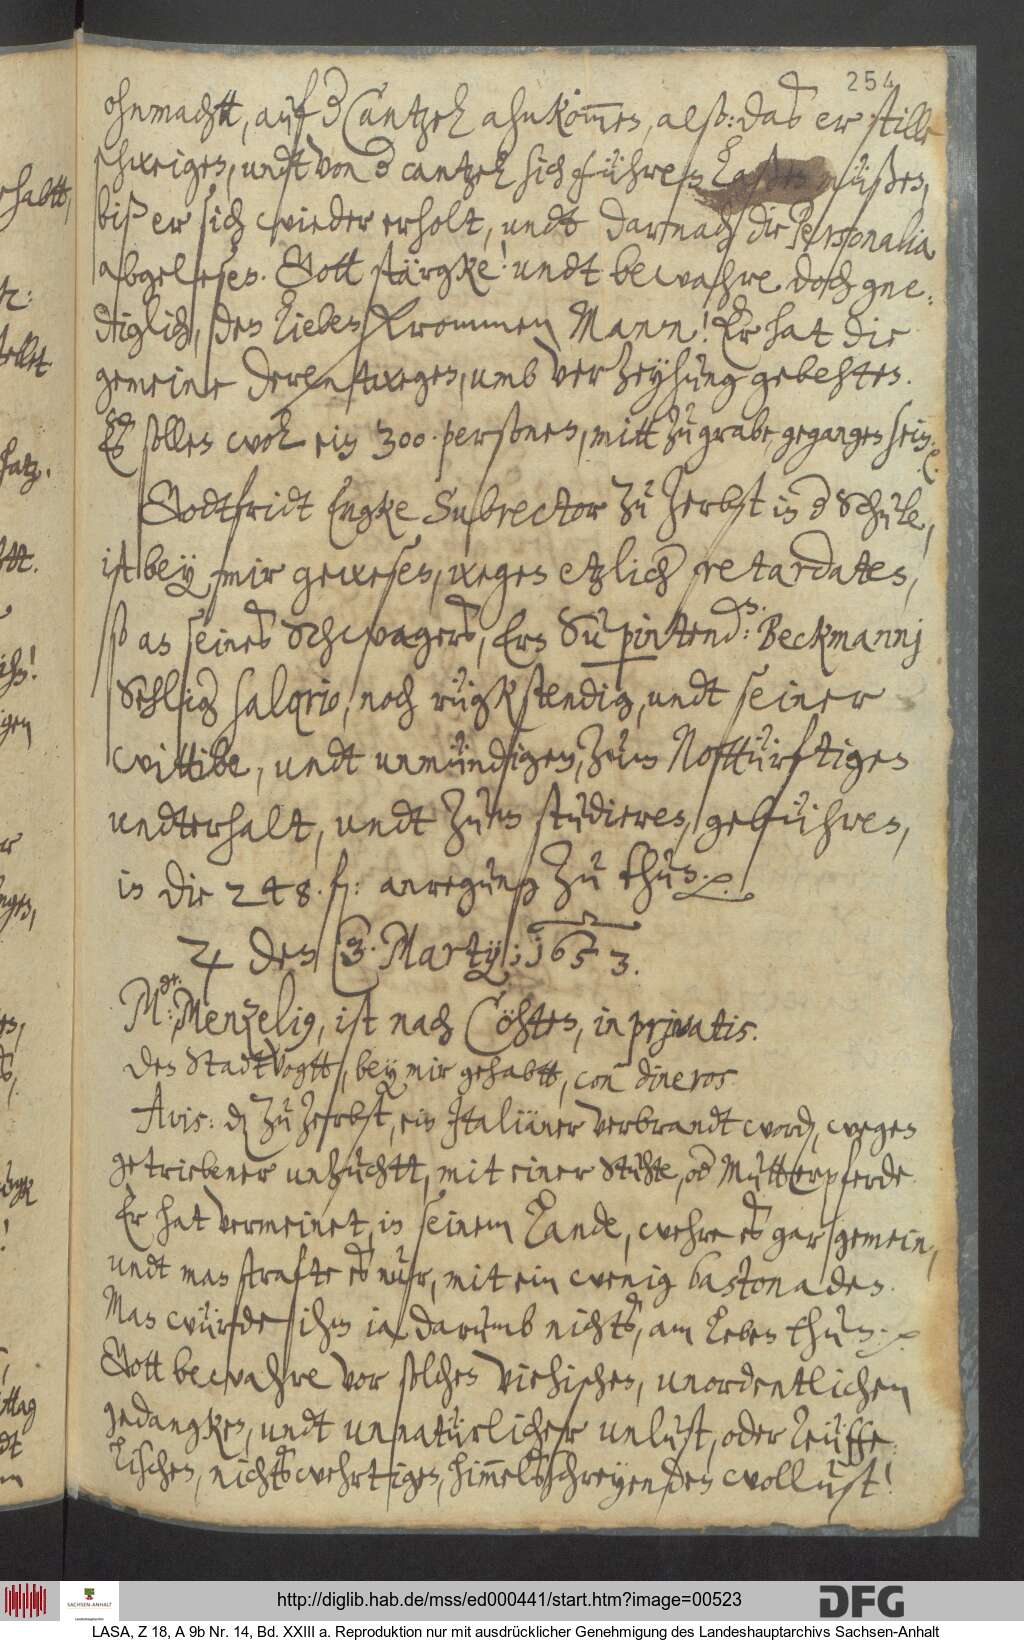 254
ohnmachtt, auf d Cantzel ahnkommen, alß: daß er stille
schweigen, undt von d cantzel sich führen laßen müßen,
biß er sich wieder erholt, undt darnach die Personalia
abgelesen. Gott stärgke! undt bewahre doch gne-
diglich, den lieben frommen Mann! Er hat die
gemeine derentwegen, umb verzeyhung gebehten.
Es sollen wol ein 300. personen, mitt zu grabe, gegangen sein.
Godtfridt Engke Subrector zu Zerbst in d Schule,
ist bey mir gewesen, wegen etzlich retardaten,
so an seines Schwagers, Ern Supintend: Beckmannj
Sehligs salario, noch rügkstendig, undt seiner
wittibe, undt unmündigen, zum Nottürftigen
undterhalt, undt zum studieren, gebühren,
in die 248. fl: anregung zu thun.
♃ den 3. Martij; 1653.
Mr: Menzelig, ist nach Cöhten, in privatis.
Den StadtVogtt, bey mir gehabtt, con dineros
Avis: dz zu Zerbst, ein Italiäner verbrandt word, wegen
getriebener unzuchtt, mit einer Stuhte, od Mutterpferde
Er hat vermeinet, in seinem Lande, wehre es gar gemein,
undt man strafte es nur, mit ein wenig bastonaden.
Man würde ihm ia darumb nichts, am leben thun.
Gott bewahre vor solchen viehischen, unordentlichen
gedangken, undt unnatürlicher unlust, oder teüffe-
lischen, nichtswehrtigen, himmelsschreyenden wollust!
SACHSEN-ANHALT
http://diglib.hab.de/mss/ed000441/start.htm?image=00523
DFG
LASA, Z 18, A 9b Nr. 14, Bd. XXIII a. Reproduktion nur mit ausdrücklicher Genehmigung des Landeshauptarchivs Sachsen-Anhalt